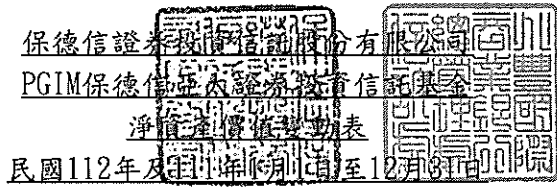 保德信證券投資信託股份有限公司
PGIM保德信亞太證券投資信託基金
淨資產價值變動表
民國112年及111年1月1日至12月31日